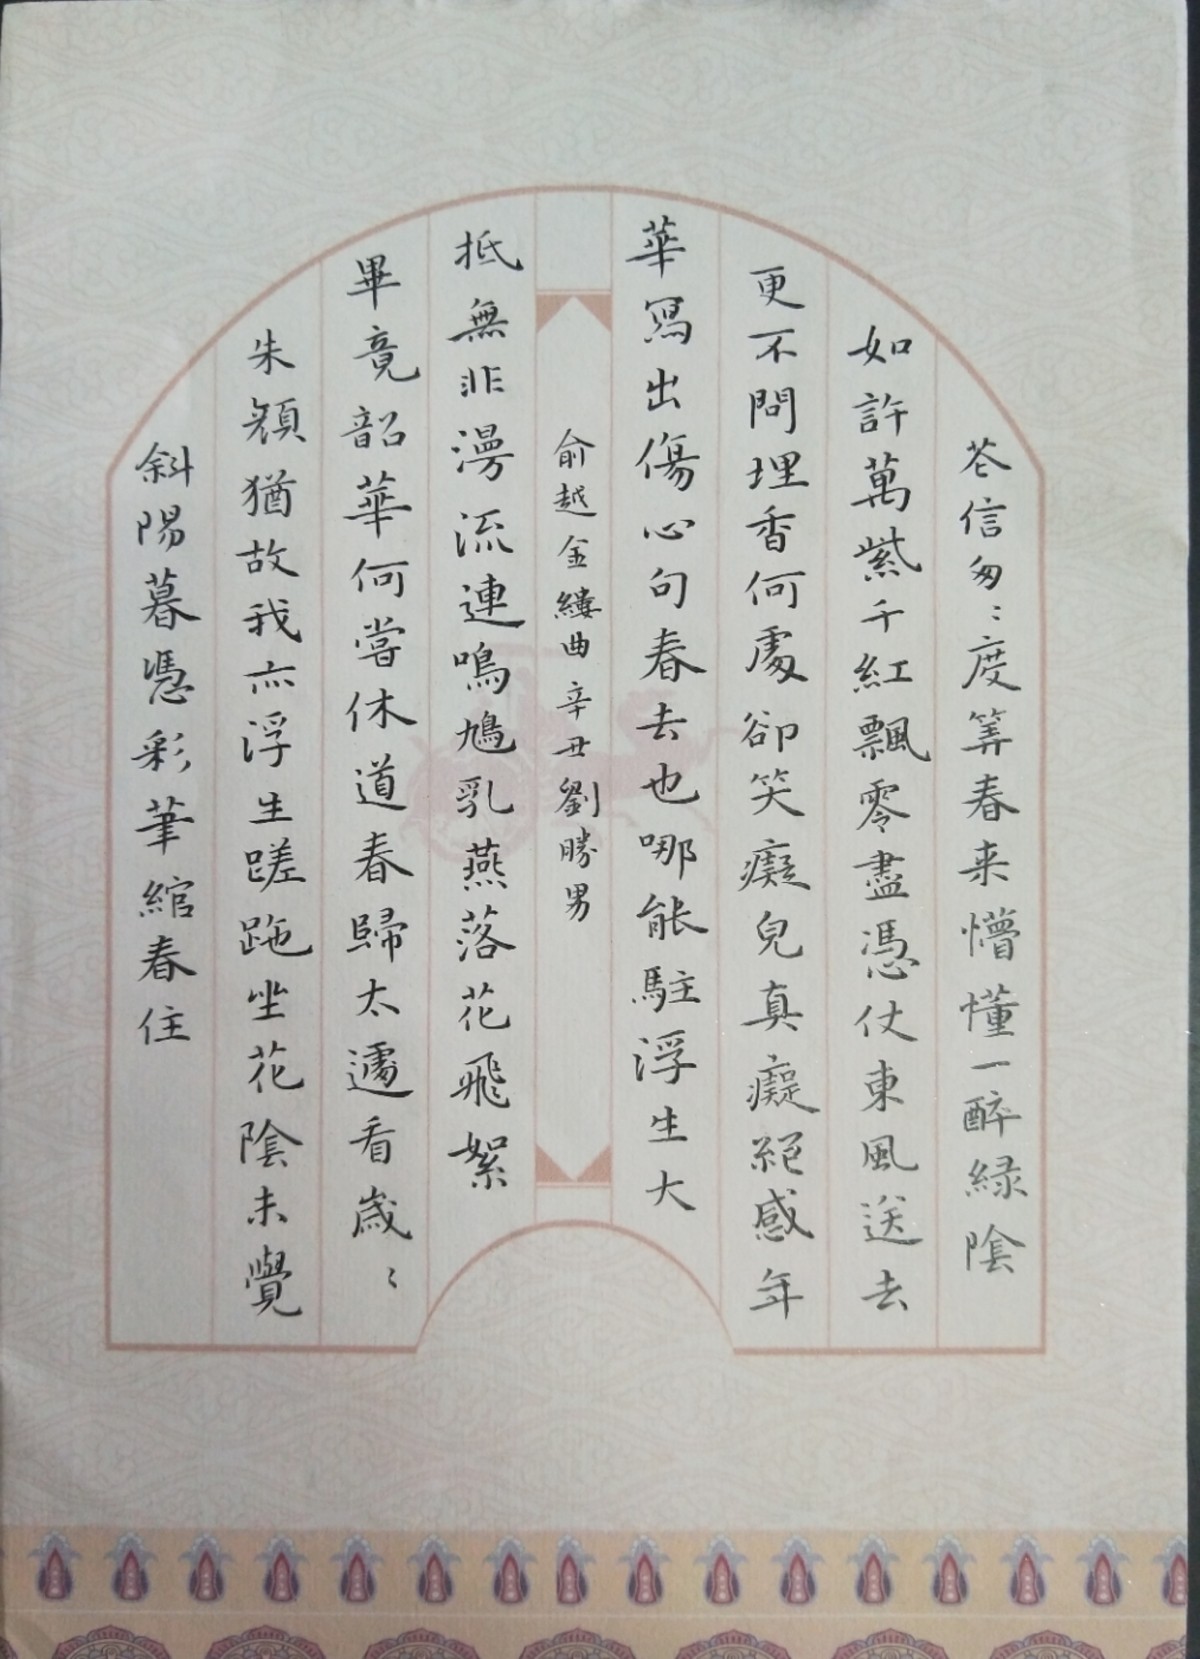 芲信匆〻度筭春来懵懂一醉緑陰
如許萬紫千紅飄零盡憑仗東風送去
更不問埋香何處卻笑癡兒真癡絕感年
華寫出傷心句春去也哪能駐浮生大
俞越金縷曲辛丑劉勝男
抵無非漫流連鳴鳩乳燕落花飛絮
畢竟韶華何嘗休道春歸太遽看歲〻
朱顔猶故我亦浮生蹉跎坐花陰未覺
斜陽暮憑彩筆綰春住